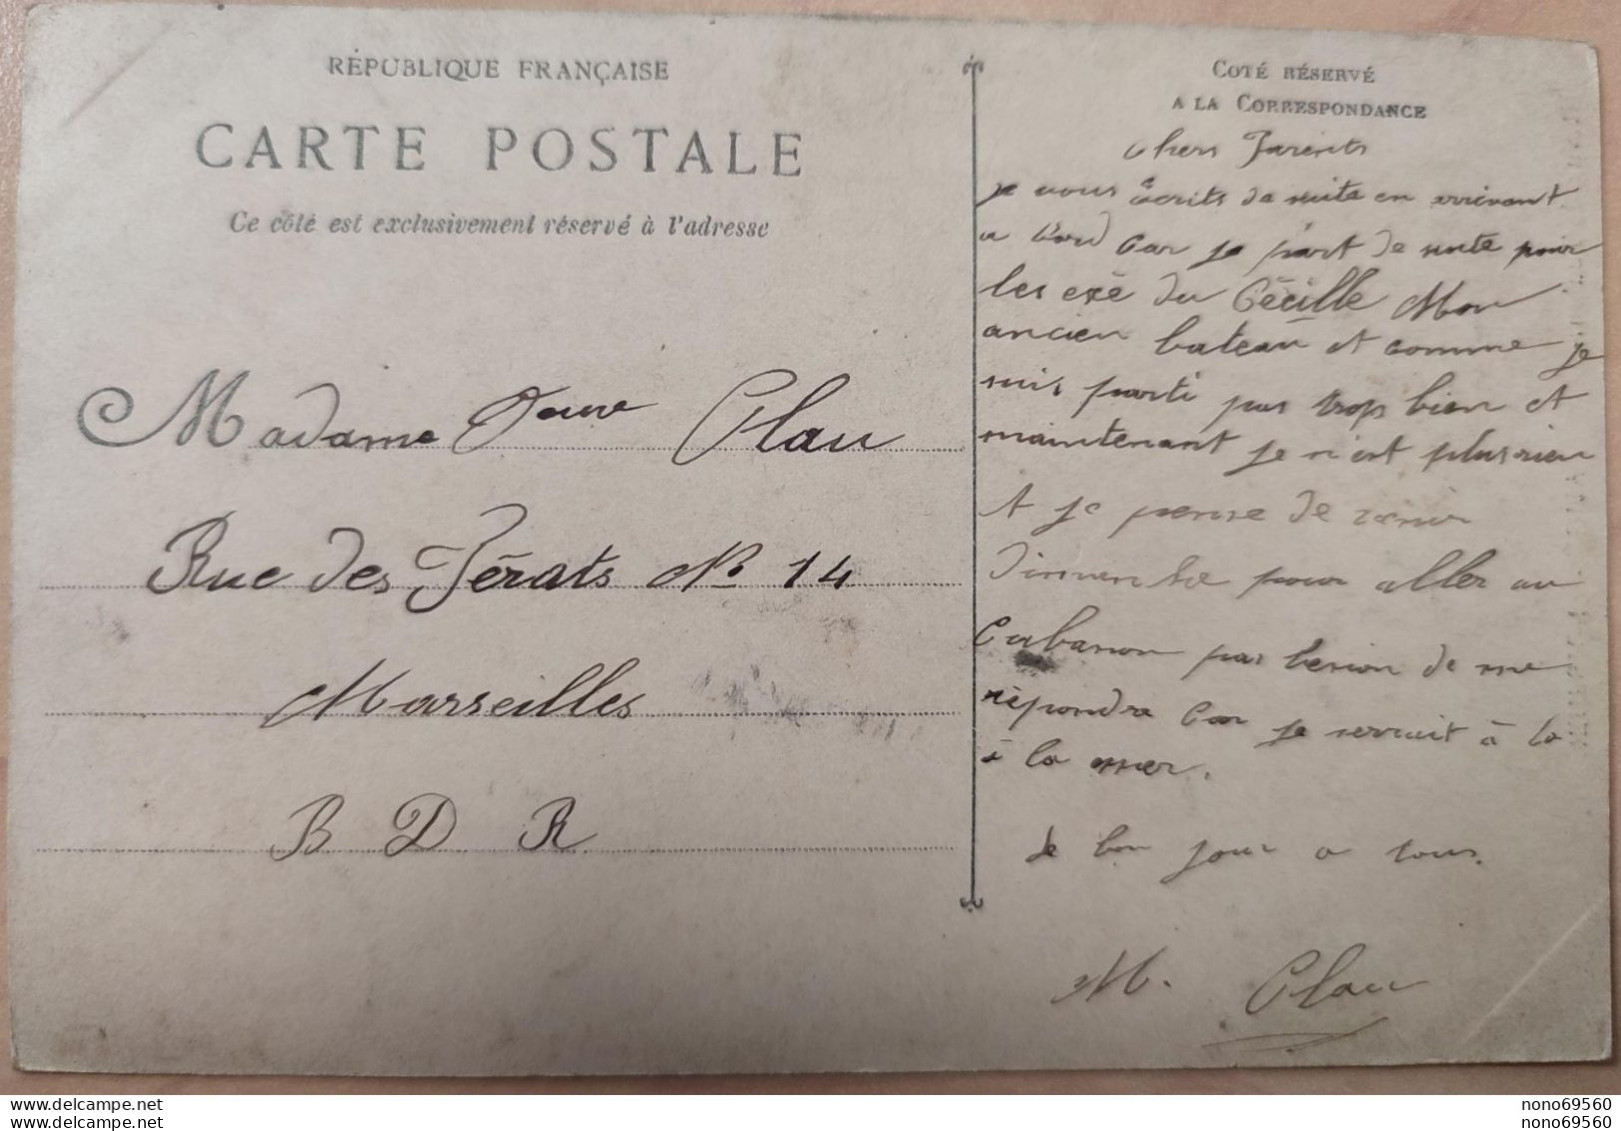 RÉPUBLIQUE FRANÇAISE
CARTE POSTALE
Ce côté est exclusivement réservé à l'adresse
Madame Veuve Clau
Rue des Férats No 14
Marseilles
B D R
COTÉ RÉSERVÉ
A LA CORRESPONDANCE
Chers Parents
je vous écrits de suite en arrivant
a bord Car je part de suite pour
les exé du Cécille Mon
ancien bateau et comme je
suis parti pas trop bien et
maintenant je n'est plus rien
et je pense de venir
dimenche pour aller au
Cabanon pas besion de me
répondre Car je serrait à la
à la mer.
le bon jour a tous.
M. Clau
nono69560 nono69560
nono69560 nono69560